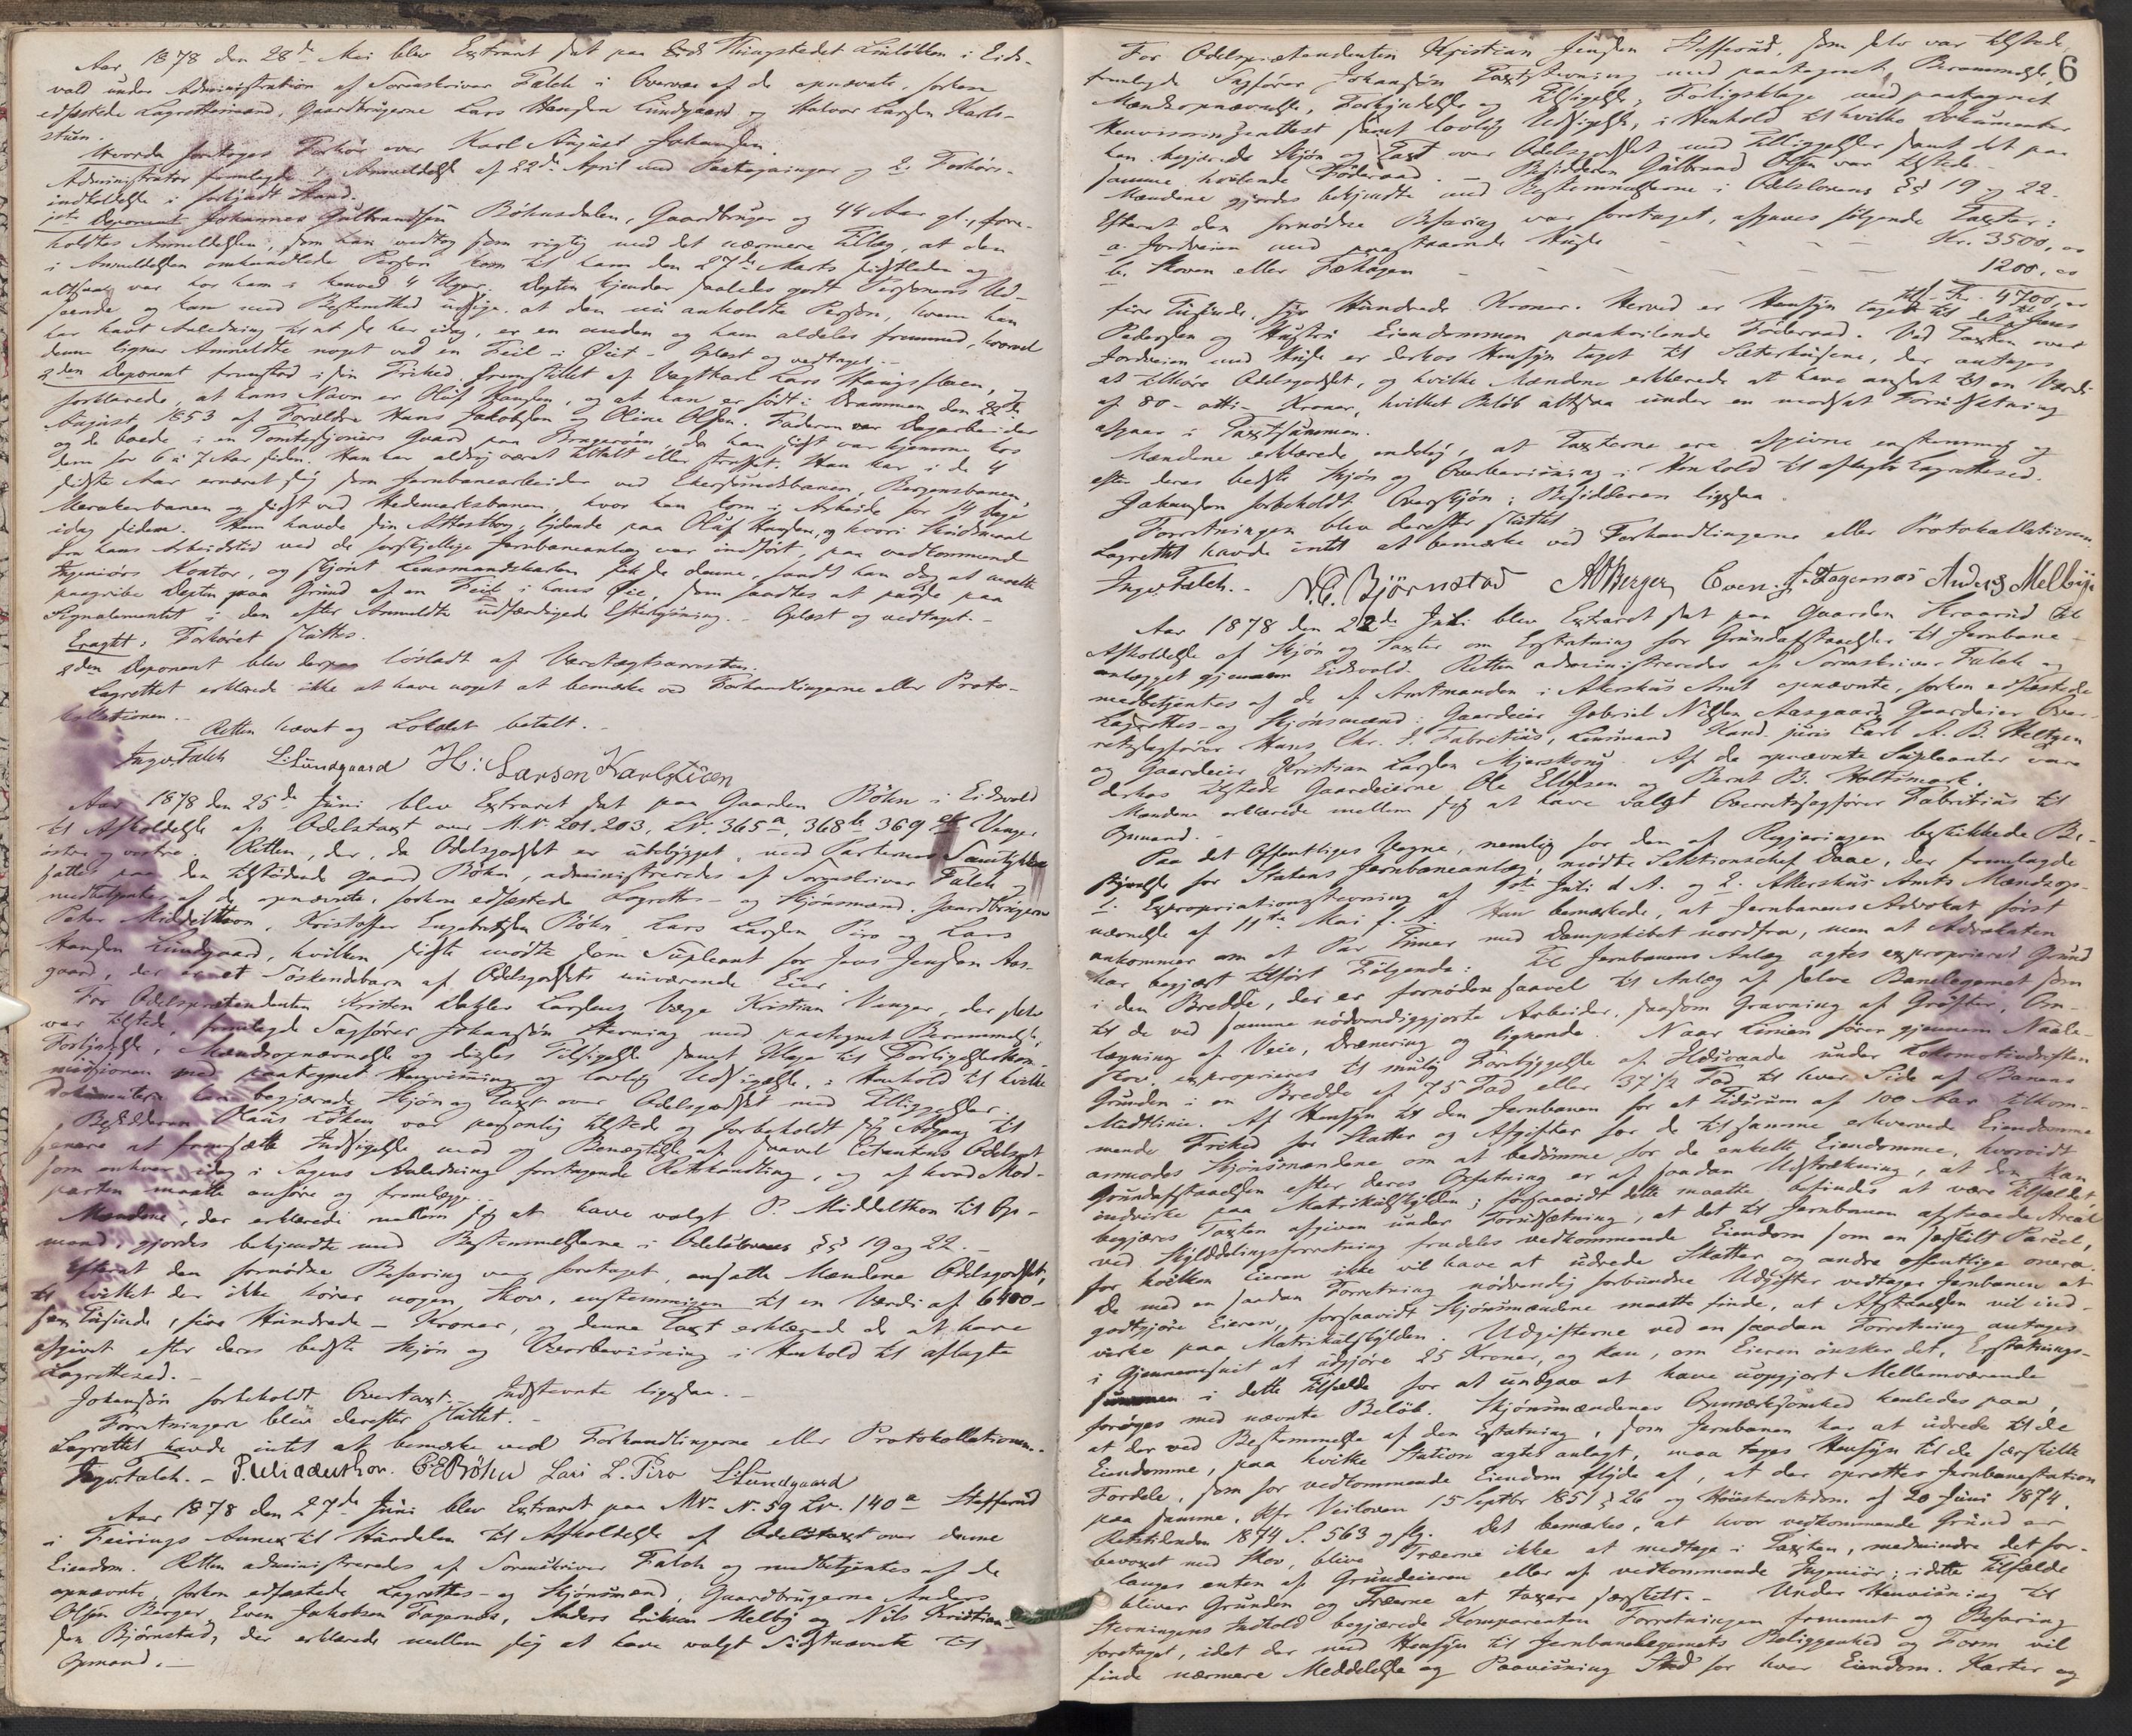 Aar 1878 den 28de Mai blev Extraret sat paa Thingstedet Linløkken i Eids-
vold under Administration af Sorenskriver Falch i Overvær af de opnævnte, forhen
edfæstede Lagrettesmænd, Gaardbrugerne Lars Hansen Lundgaard og Halvor Larsen Karls-
stuen.
Hvorda foretoges Forhør over Karl August Johansen.
Administrator fremlagde 1. Anmeldelse af 22de April med Paategninger og 2. Forhørs-
indkaldelse i forkyndt Stand.
1ste Deponent Johannes Gulbrandsen Bøhnsdalen, Gaardbruger og 44 Aar gl., fore-
holdtes Anmeldelsen, som han vedtog som rigtig med det nærmere Tillæg, at den
i Anmeldelsen omhandlede Person kom til ham den 27de Marts sidstleden og
altsaa var hos ham i henved 4 Uger. Depten kjender saaledes godt Personens Ud-
seende og kan med Bestemthed udsige, at den nu anholdte Person, hvem han
har havt Anledning til at se her idag, er en anden og ham aldeles fremmed, hvorvel
denne ligner Anmeldte noget ved en Feil i Øiet. - Oplæst og vedtaget. -
2den Deponent fremstod i sin Frihed fremstillet af Vægtkarl Lars Haugssleen, og
forklarede, at hans Navn er Oluf Hansen, og at han er født i Drammen den 22de
August 1853 af Forældre Hans Jakobsen og Oline Olsen. Faderen var Dagarbeider
og de boede i en Gaard paa Bragerøen, da han sidst var hjemme hos
dem for 6 à 7 Aar siden. Han har aldrig været tiltalt eller straffet. Han har i de 4
sidste Aar ernæret sig som Jernbanearbeider ved Ekersundsbanen, Bergensbanen,
Merakerbanen og sidst ved Hedemarksbanen, hvor han kom i Arbeide for 14 Dage
idag siden. Han havde sin Attestbog, lydende paa Oluf Hansen, og hvori Skudsmaal
fra hans Arbeidstid ved de forskjellige Jernbaneanlæg var indført, paa vedkommende
Ingeniørs Kontor, og skjønt Lensmandskarlen fik se denne, fandt han dog at maatte
paagribe Depten paa Grund af en Feil i hans Øie, som saaes at passe paa
Signalementet i den efter Anmeldte udfærdigede Efterlysning. - Oplæst og vedtaget. -
Eragtet: Forhøret sluttes.
2den Deponent blev derpaa løsladt af Varetægtsarresten.
Lagrettet erklærede ikke at have noget at bemærke ved Forhandlingerne eller Proto-
kollationen. -
Retten hævet og Lokalet betalt. -
Ingv. Falch L. Lundgaard H: Larsen Karlstuen
Aar 1878 den 25de Juni blev Extraret sat paa Gaarden Bøhn i Eidsvold
til Afholdelse af Odelstaxt over M.N. 201.203, L.N. 365a, 368b 369 Venger
østre og vestre. Retten, der, da Odelsgodset er ubebygget, med Parternes Samtykke
sattes paa den tilstødende Gaard Bøhn, administreredes af Sorenskriver Falch og
medbetjentes af de opnævnte, forhen edfæstede Lagrettes- og Skjønsmænd, Gaardbrugerne
Peter Middelthon, Kristoffer Engebretsen Bøhn, Lars Larsen Piro og Lars
Hansen Lundgaard, hvilken sidste mødte som Supleant for Jens Jensen Aas-
gaard, der er Søskendebarn af Odelsgodsets nuværende Eier.
For Odelsprætendenten Kristen Larsens Værge Kristian Venger, der selv
var tilstede, fremlagde Sagfører Johansen Stevning med paategnet Berammelse,
Forkyndelse, Mændsopnævnelse og disses Tilsigelse samt Klage til Forligelseskom-
missionen med paategnet Henvisning og lovlig Udsigelse, i Henhold til hvilke
Dokumenter han begjærede Skjøn og Taxt over Odelsgodset med Tilliggelser.
Besidderen Klaus Løken var personlig tilstede og forbeholdt sig Adgang til
senere at fremsætte Indsigelse mod og Benægtelse af saavel Citantens Odelsret
som enhver idag i Sagens Anledning foretagende Rethandling, og af hvad Mod-
parten maatte anføre og fremlægge. -
Mændene, der erklærede mellem sig at have valgt P. Middelthon til Op-
mand, gjordes bekjendte med Bestemmelserne i Odelslovens §§ 19 og 22. -
Efterat den fornødne Befaring var foretaget, ansatte Mændene Odelsgodset,
til hvilket der ikke hører nogen Skov, enstemmigen til en Værdi af 6400 -
sex Tusinde, fire Hundrede - Kroner, og denne Taxt erklærede de at have
afgivet efter deres bedste Skjøn og Overbevisning i Henhold til aflagte
Lagrettesed. -
Johansen forbeholdt Overtaxt. - Indstevnte ligesaa. -
Forretningen blev derefter sluttet. -
Lagrettet havde intet at bemærke ved Forhandlingerne eller Protokollationen. -
Ingv. Falch. - P. Middelthon. C E Bøhn Lars L. Piro L. Lundgaard
Aar 1878 den 27de Juni blev Extraret paa MN. N. 59 LN. 140a Stefferud
i Feirings Annex til Hurdalen til Afholdelse af Odelstaxt over denne
Eiendom. Retten administreredes af Sorenskriver Falch og medbetjentes af de
opnævnte, forhen edfæstede Lagrettes- og Skjønsmænd, Gaardbrugerne Anders
Olsen Berger, Even Jakobsen Fagernæs, Anders Eriksen Melby og Nils Kristian-
sen Bjørnstad, der erklærede mellem sig at have valgt Sidstnævnte til
Opmand. -
6
For Odelsprætendenten Kristian Jensen Stefferud, som selv var tilstede,
fremlagde Sagfører Johansen Taxtstevning med paategnet Berammelse,
Mændsopnævnelse, Forkyndelse og Tilsigelse; Forligsklage med paategnet
Henvisningsattest samt lovlig Udsigelse, i Henhold til hvilke Dokumenter
han begjærede Skjøn og Taxt over Odelsgodset med Tilliggelser samt det paa
samme hvilende Føderaad. - Besidderen Gulbrand Olsen var tilstede.
Mændene gjordes bekjendte med Bestemmelserne i Odelslovens §§ 19 og 22.
Efterat den fornødne Befaring var foretaget, afgaves følgende Taxter:
a. Jordveien med paastaaende Huse - - - Kr. 3500,00
b. Skoven eller Fæhagen - - - - - 1200,00
tils. Kr. 4700,00
fire Tusinde, syv Hundrede Kroner. Herved er Hensyn taget til det Jens
Pedersen og Hustru Eiendommen paahvilende Føderaad. Ved Taxten over
Jordveien med Huse er derhos Hensyn taget til Sæterhusene, der antages
at tilhøre Odelsgodset, og hvilke Mændene erklærede at have ansat til en Værdi
af 80 - otti - Kroner, hvilket Beløb altsaa under en modsat Forudsætning
afgaar i Taxtsummen.
Mændene erklærede endelig, at Taxterne ere afgivne enstemmig og
efter deres bedste Skjøn og Overbevisning i Henhold til aflagte Lagrettesed.
Johansen forbeholdt Overskjøn; Besidderen ligesaa.
Forretningen blev derefter sluttet.
Lagrettet havde intet at bemærke ved Forhandlingerne eller Protokollationen.
Ingv. Falch. - N.C. Bjørnstad AOBerger Even J. Fagernæs Anders Melbye
Aar 1878 den 22de Juli blev Extraret sat paa Gaarden Kraarud til
Afholdelse af Skjøn og Taxter om Erstatning for Grundafstaaelser til Jernbane-
anlægget gjennem Eidsvold. Retten administreredes af Sorenskriver Falch og
medbetjentes af de af Amtmanden i Akershus Amt opnævnte, forhen edfæstede
Lagrettes- og Skjønsmænd: Gaardeier Gabriel Nilsen Aasgaard, Gaardeier Over-
retssagfører Hans Chr. J. Fabritius, Lensmand Kand. juris Carl A. B. Heltzen
og Gaardeier Kristian Larsen Mjørskoug. Af de opnævnte Supleanter vare
derhos tilstede Gaardeierne Ole Ellefsen og Bernt P. Holtsmark.
Mændene erklærede mellem sig at have valgt Overretssagfører Fabritius til
Opmand. -
Paa det Offentliges Vegne, nemlig for den af Regjeringen beskikkede Be-
styrelse for Statens Jernbaneanlæg, mødte Sektionschef Daae, der fremlagde
1. Expropriationsstevning af 1ste Juli d.A. og 2. Akershus Amts Mændsop-
nævnelse af 11te Mai s. A. Han bemærkede, at Jernbanens Advokat først
ankommer om et Par Timer med Dampskibet nordfra, men at Advokaten
har begjært tilført Følgende: Til Jernbanens Anlæg agtes exproprieret Grund
i den Bredde, der er fornøden saavel til Anlæg af selve Banelegemet som
til de ved samme nødvendiggjorte Arbeider, saasom Gravning af Grøfter, Om-
lægning af Veie, Drænering og lignende. Naar Linien fører gjennem Naale-
skov, exproprieres til mulig Forebyggelse af Ildsvaade under Lokomotivdriften
Grunden i en Bredde af 75 Fod eller 37 1/2 Fod til hver Side af Banens
Midtlinie. Af Hensyn til den Jernbanen for et Tidsrum af 100 Aar tilkom-
mende Frihed for Skatter og Afgifter for de til samme erhvervede Eiendomme
anmodes Skjønsmændene om at bedømme for de enkelte Eiendomme, hvorvidt
Grundafstaaelsen efter deres Opfatning er af saadan Udstrækning, at den kan
indvirke paa Matrikulskylden; forsaavidt dette maatte befindes at være Tilfældet,
begjæres Taxten afgiven under Forudsætning, at det til Jernbanen afstaaede Areal
ved Skylddelingsforretning fradeles vedkommende Eiendom som en særskilt Parcel,
for hvilken Eieren ikke vil have at udrede Skatter og andre offentlige onera.
De med en saadan Forretning nødvendig forbundne Udgifter vedtager Jernbanen at
godtgjøre Eieren, forsaavidt Skjønsmændene maatte finde, at Afstaaelsen vil ind-
virke paa Matrikulskylden. Udgifterne ved en saadan Forretning antages
i Gjennemsnit at udgjøre 25 Kroner, og kan, om Eieren ønsker det, Erstatnings-
summen i dette Tilfælde for at undgaa at have uopgjort Mellemværende
forøges med nævnte Beløb. Skjønsmændenes Opmærksomhed henledes paa,
at der ved Bestemmelse af den Erstatning, som Jernbanen har at udrede til de
Eiendomme, paa hvilke Station agtes anlagt, maa tages Hensyn til de særskilte
Fordele, som for vedkommende Eiendom flyde af, at der oprettes Jernbanestation
paa samme, kfr. Veiloven 15 Septbr 1851 § 26 og Høiesteretsdom af 20 Juni 1874,
Retstidenden 1874 S. 563 og flg. Det bemærkes, at hvor vedkommende Grund er
bevoxet med Skov, blive Træerne ikke at medtage i Taxten, medmindre det for-
langes enten af Grundeieren eller af vedkommende Ingeniør; i dette Tilfælde
bliver Grunden og Træerne at taxere særskilt. - Under Henvisning til
Stevningens Indhold begjærede Komparenten Forretningen fremmet og Befaring
foretaget, idet der med Hensyn til Jernbanelegemets Beliggenhed og Form vil
finde nærmere Meddelelse og Paavisning Sted for hver Eiendom. Karter og